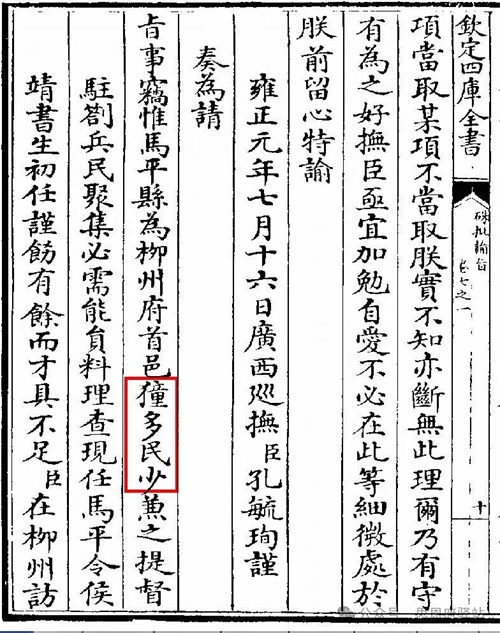 欽定四庫全書
硃批諭旨
卷七之一
十
項當取某項不當取朕實不知亦斷無此理爾乃有守
有為之好撫臣亟宜加勉自愛不必在此等細微處於
朕前留心特諭
雍正元年七月十六日廣西廵撫臣孔毓珣謹
奏為請
㫖事竊惟馬平縣為柳州府首邑獞多民少兼之提督
駐劄兵民聚集必需能員料理查現任馬平令侯
靖書生初任謹飭有餘而才具不足臣在柳州訪
公众号